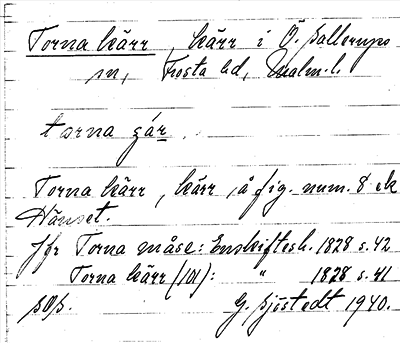 Torna kärr, kärr i Ö. Sallerups
sn, Frosta hd, Malm. l.
torna çár.
Torna kärr, kärr, å fig. num. 8 ek
Hänset.
Jfr Torna måse: Enskiftesh. 1828 s. 42
Torna kärr (101): " 1828 s. 41
G. Sjöstedt 1940.